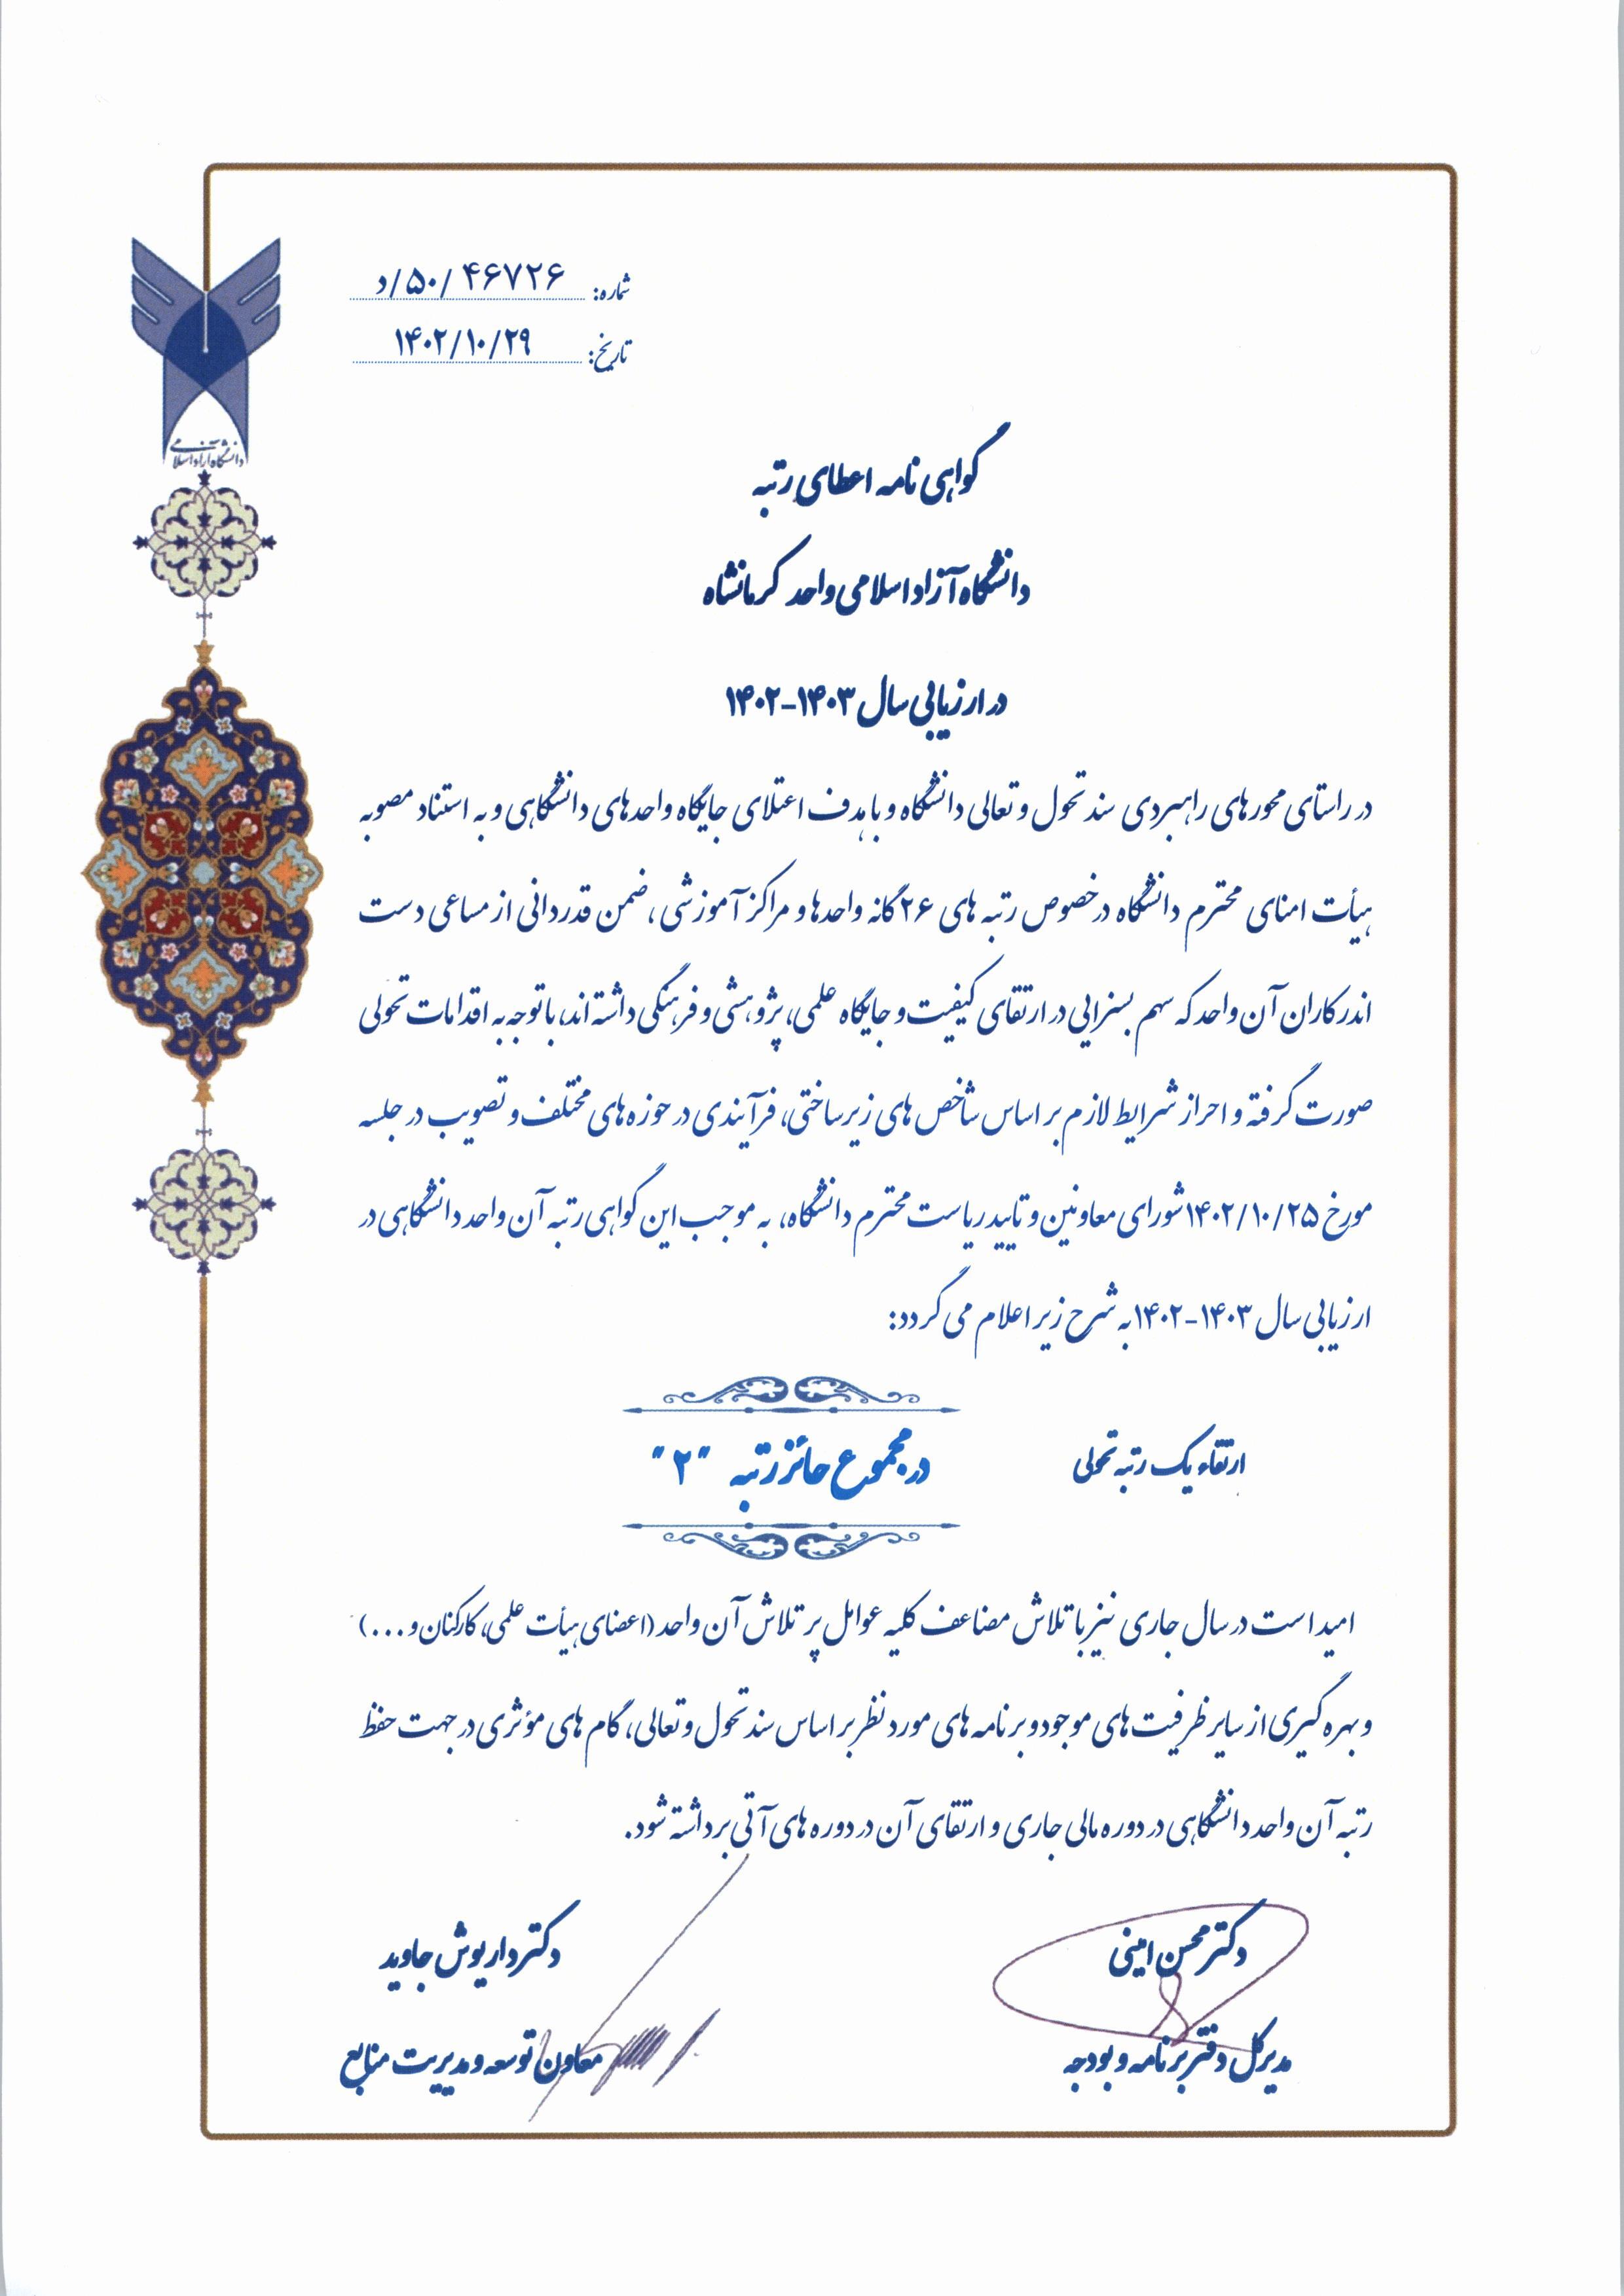 دانشگاه آزاد اسلامی
شماره: ۴۶۷۲۶ /۵۰/د
تاریخ: ۱۴۰۲/۱۰/۲۹
گواهی نامه اعطای رتبه
دانشگاه آزاد اسلامی واحد کرمانشاه
در ارزیابی سال ۱۴۰۳-۱۴۰۲
در راستای محورهای راهبردی سند تحول و تعالی دانشگاه و با هدف اعتلای جایگاه واحدهای دانشگاهی و به استناد مصوبه
هیأت امنای محترم دانشگاه در خصوص رتبه های ۲۶ گانه واحدها و مراکز آموزشی، ضمن قدردانی از مساعی دست
اندرکاران آن واحد که سهم بسزایی در ارتقای کیفیت و جایگاه علمی، پژوهشی و فرهنگی داشته اند، با توجه به اقدامات تحولی
صورت گرفته و احراز شرایط لازم بر اساس شاخص های زیرساختی، فرآیندی در حوزه های مختلف و تصویب در جلسه
مورخ ۱۴۰۲/۱۰/۲۵ شورای معاونین و تایید ریاست محترم دانشگاه، به موجب این گواهی رتبه آن واحد دانشگاهی در
ارزیابی سال ۱۴۰۳-۱۴۰۲ به شرح زیر اعلام می گردد:
ارتقاء یک رتبه تحولی
در مجموع حائز رتبه "۲"
امید است در سال جاری نیز با تلاش مضاعف کلیه عوامل پر تلاش آن واحد (اعضای هیأت علمی، کارکنان و ...)
و بهره گیری از سایر ظرفیت های موجود و برنامه های مورد نظر بر اساس سند تحول و تعالی، گام های مؤثری در جهت حفظ
رتبه آن واحد دانشگاهی در دوره مالی جاری و ارتقای آن در دوره های آتی برداشته شود.
دکتر محسن امینی
مدیرکل دفتر برنامه و بودجه
دکتر داریوش جاوید
معاون توسعه و مدیریت منابع